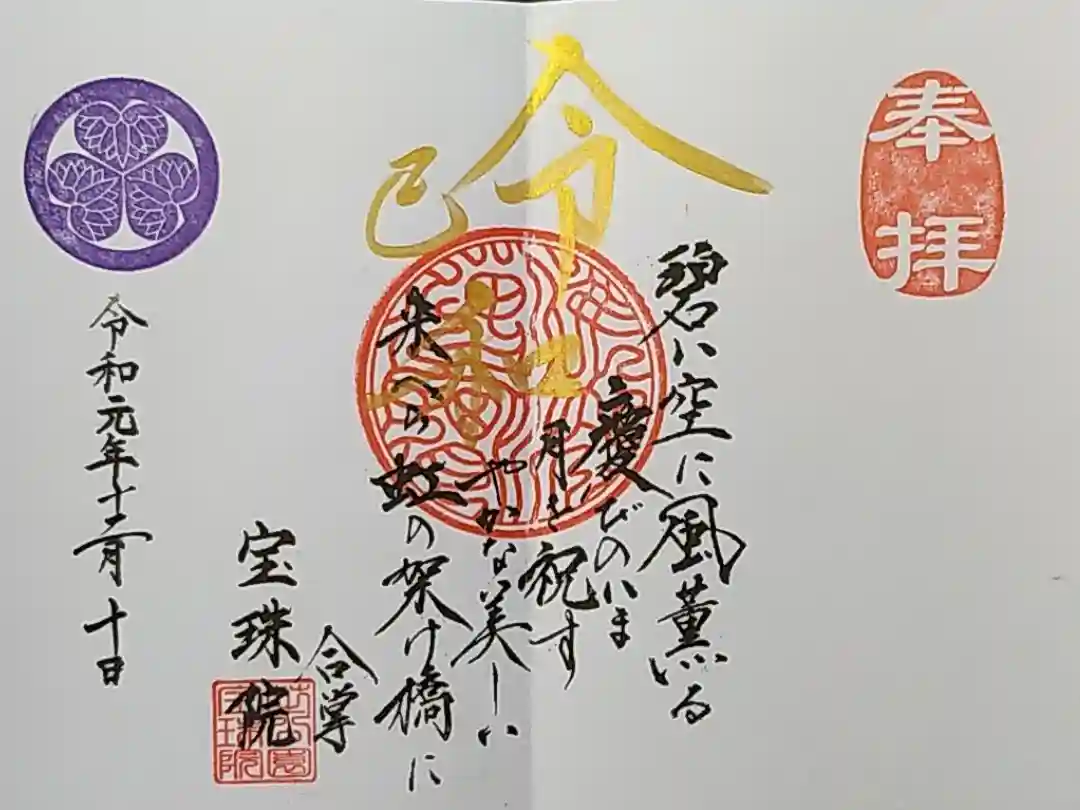 奉拝
碧い空に風薫る
慶びのいま
令
月を祝す
和
やかな美しい
己
来への虹の架け橋に
合掌
宝珠院
令和元年十二月十日